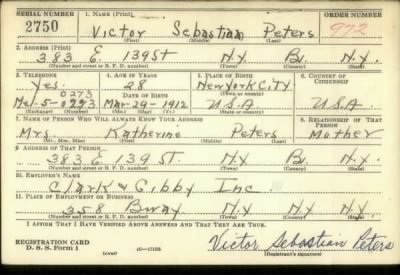 SERIAL NUMBER 1. NAME (Print) ORDER NUMBER
2750 Victor Sebastian Peters 972
(First) (Middle) (Last)
2. ADDRESS (Print)
383 E. 139 St N.Y. B. N.Y.
(Number and street or R. F. D. number) (Town) (County) (State)
3. TELEPHONE 4. AGE IN YEARS 5. PLACE OF BIRTH 6. COUNTRY OF CITIZENSHIP
Yes. 28 New York City
0273 DATE OF BIRTH (Town or county)
Me-5-0293 Mar-29-1912 U.S.A. U.S.A.
(Exchange) (Number) (Mo.) (Day) (Yr.) (State or country)
7. NAME OF PERSON WHO WILL ALWAYS KNOW YOUR ADDRESS 8. RELATIONSHIP OF THAT PERSON
Mrs. Katherine Peters Mother
(Mr., Mrs., Miss) (First) (Middle) (Last)
9. ADDRESS OF THAT PERSON
383 E. 139 St. N.Y. B. N.Y.
(Number and street or R. F. D. number) (Town) (County) (State)
10. EMPLOYER'S NAME
Clark & Gibby Inc.
11. PLACE OF EMPLOYMENT OR BUSINESS
358 Bway N.Y. N.Y. N.Y.
(Number and street or R. F. D. number) (Town) (County) (State)
I AFFIRM THAT I HAVE VERIFIED ABOVE ANSWERS AND THAT THEY ARE TRUE.
REGISTRATION CARD
D. S. S. Form 1 (over) 16-17105 Victor Sebastian Peters
(Registrant's signature)